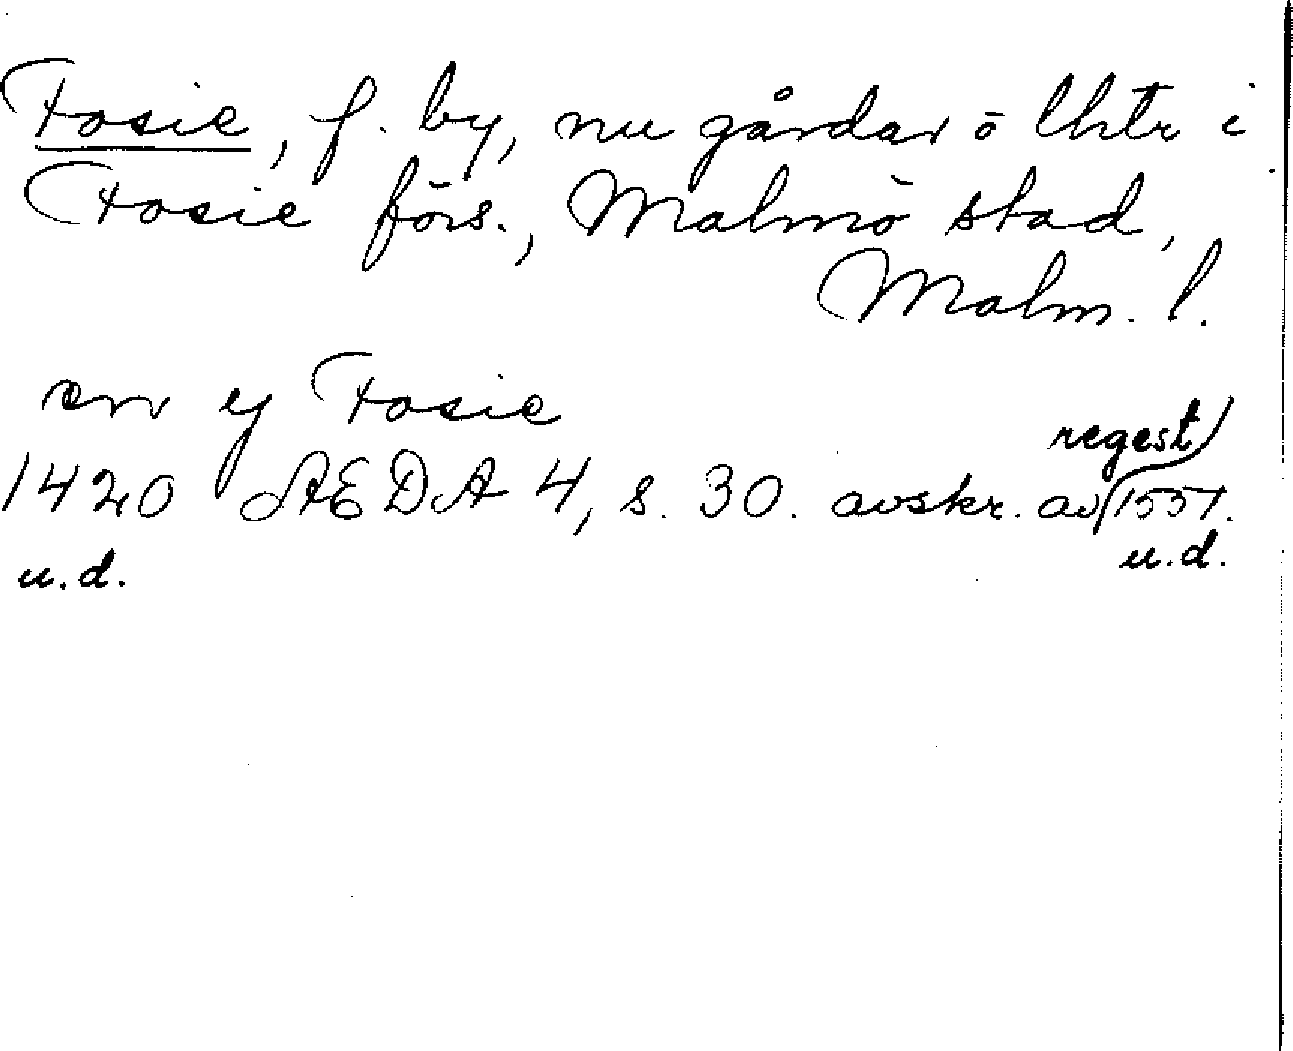 Fosie, f. by, nu gårdar o lhtr i
Fosie förs., Malmö stad,
Malm. l.
em y Fosie
regest
1420 ÆDA 4, s. 30. avskr. av 1551.
u.d. u.d.